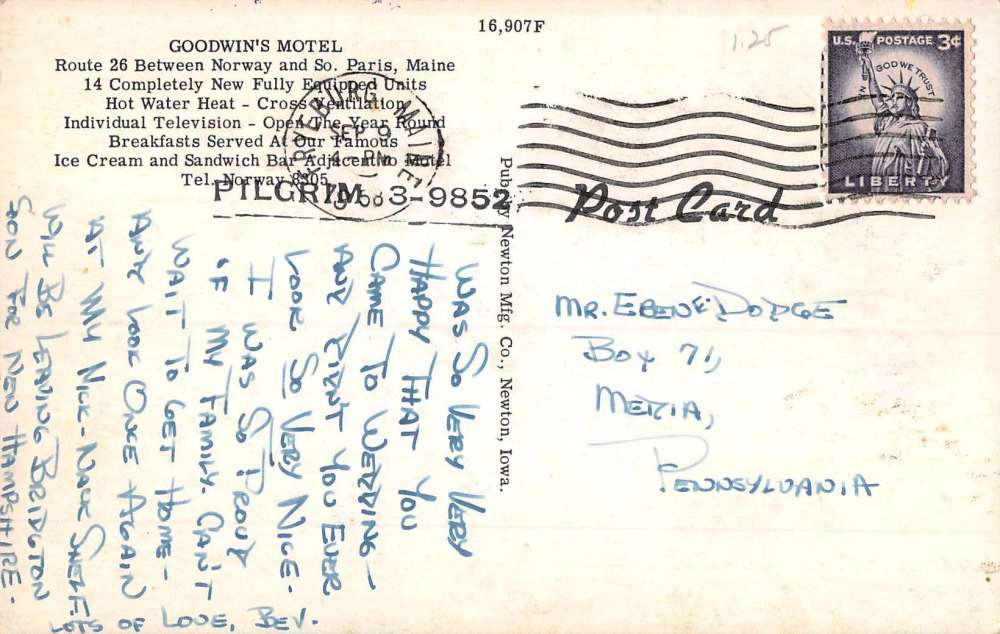 16,907F
1.25
GOODWIN'S MOTEL
Route 26 Between Norway and So. Paris, Maine
14 Completely New Fully Equipped Units
Hot Water Heat - Cross Ventilation
Individual Television - Open The Year Round
Breakfasts Served At Our Famous
Ice Cream and Sandwich Bar Adjacent to Motel
Tel. Norway 8305
PILGRIM 3-9852
MAINE
SEP 9
PM
U.S. POSTAGE 3¢
IN GOD WE TRUST
LIBERTY
Post Card
Publ by Newton Mfg. Co., Newton, Iowa.
WAS SO VERY VERY
HAPPY THAT YOU
CAME TO WEDDING—
AND DIDN'T YOU EVER
LOOK SO VERY NICE.
I WAS SO PROUD
OF MY FAMILY. CAN'T
WAIT TO GET HOME-
AND LOOK ONCE AGAIN
AT MY NICK-NACK SHELF.
WILL BE LEAVING BRIDGTON
SOON FOR NEW HAMPSHIRE.
LOTS OF LOVE, BEV.
MR. EBEN DODGE
BOX 71,
MEDIA,
PENNSYLVANIA